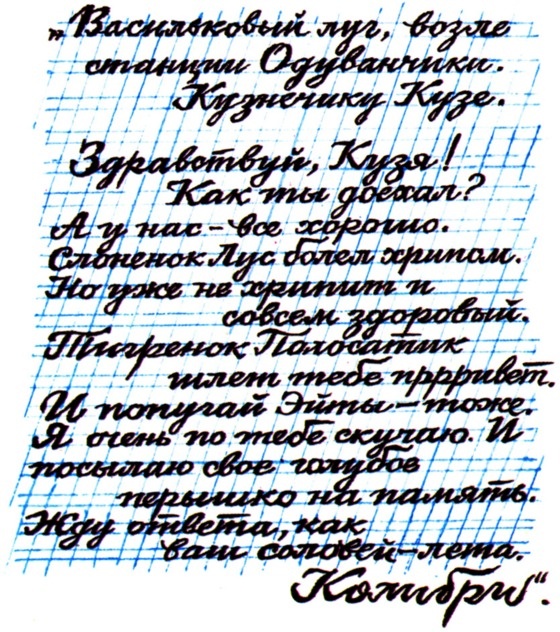 „Васильковый луг, возле
станции Одуванчики.
Кузнечику Кузе.
Здравствуй, Кузя!
Как ты доехал?
А у нас - все хорошо.
Слоненок Лус болел хрипом.
Но уже не хрипит и
совсем здоровый.
Тигренок Полосатик
шлет тебе прррривет.
И попугай Эйты - тоже.
Я очень по тебе скучаю. И
посылаю свое голубое
перышко на память.
Жду ответа, как
ваш соловей - лета.
Колибри“.